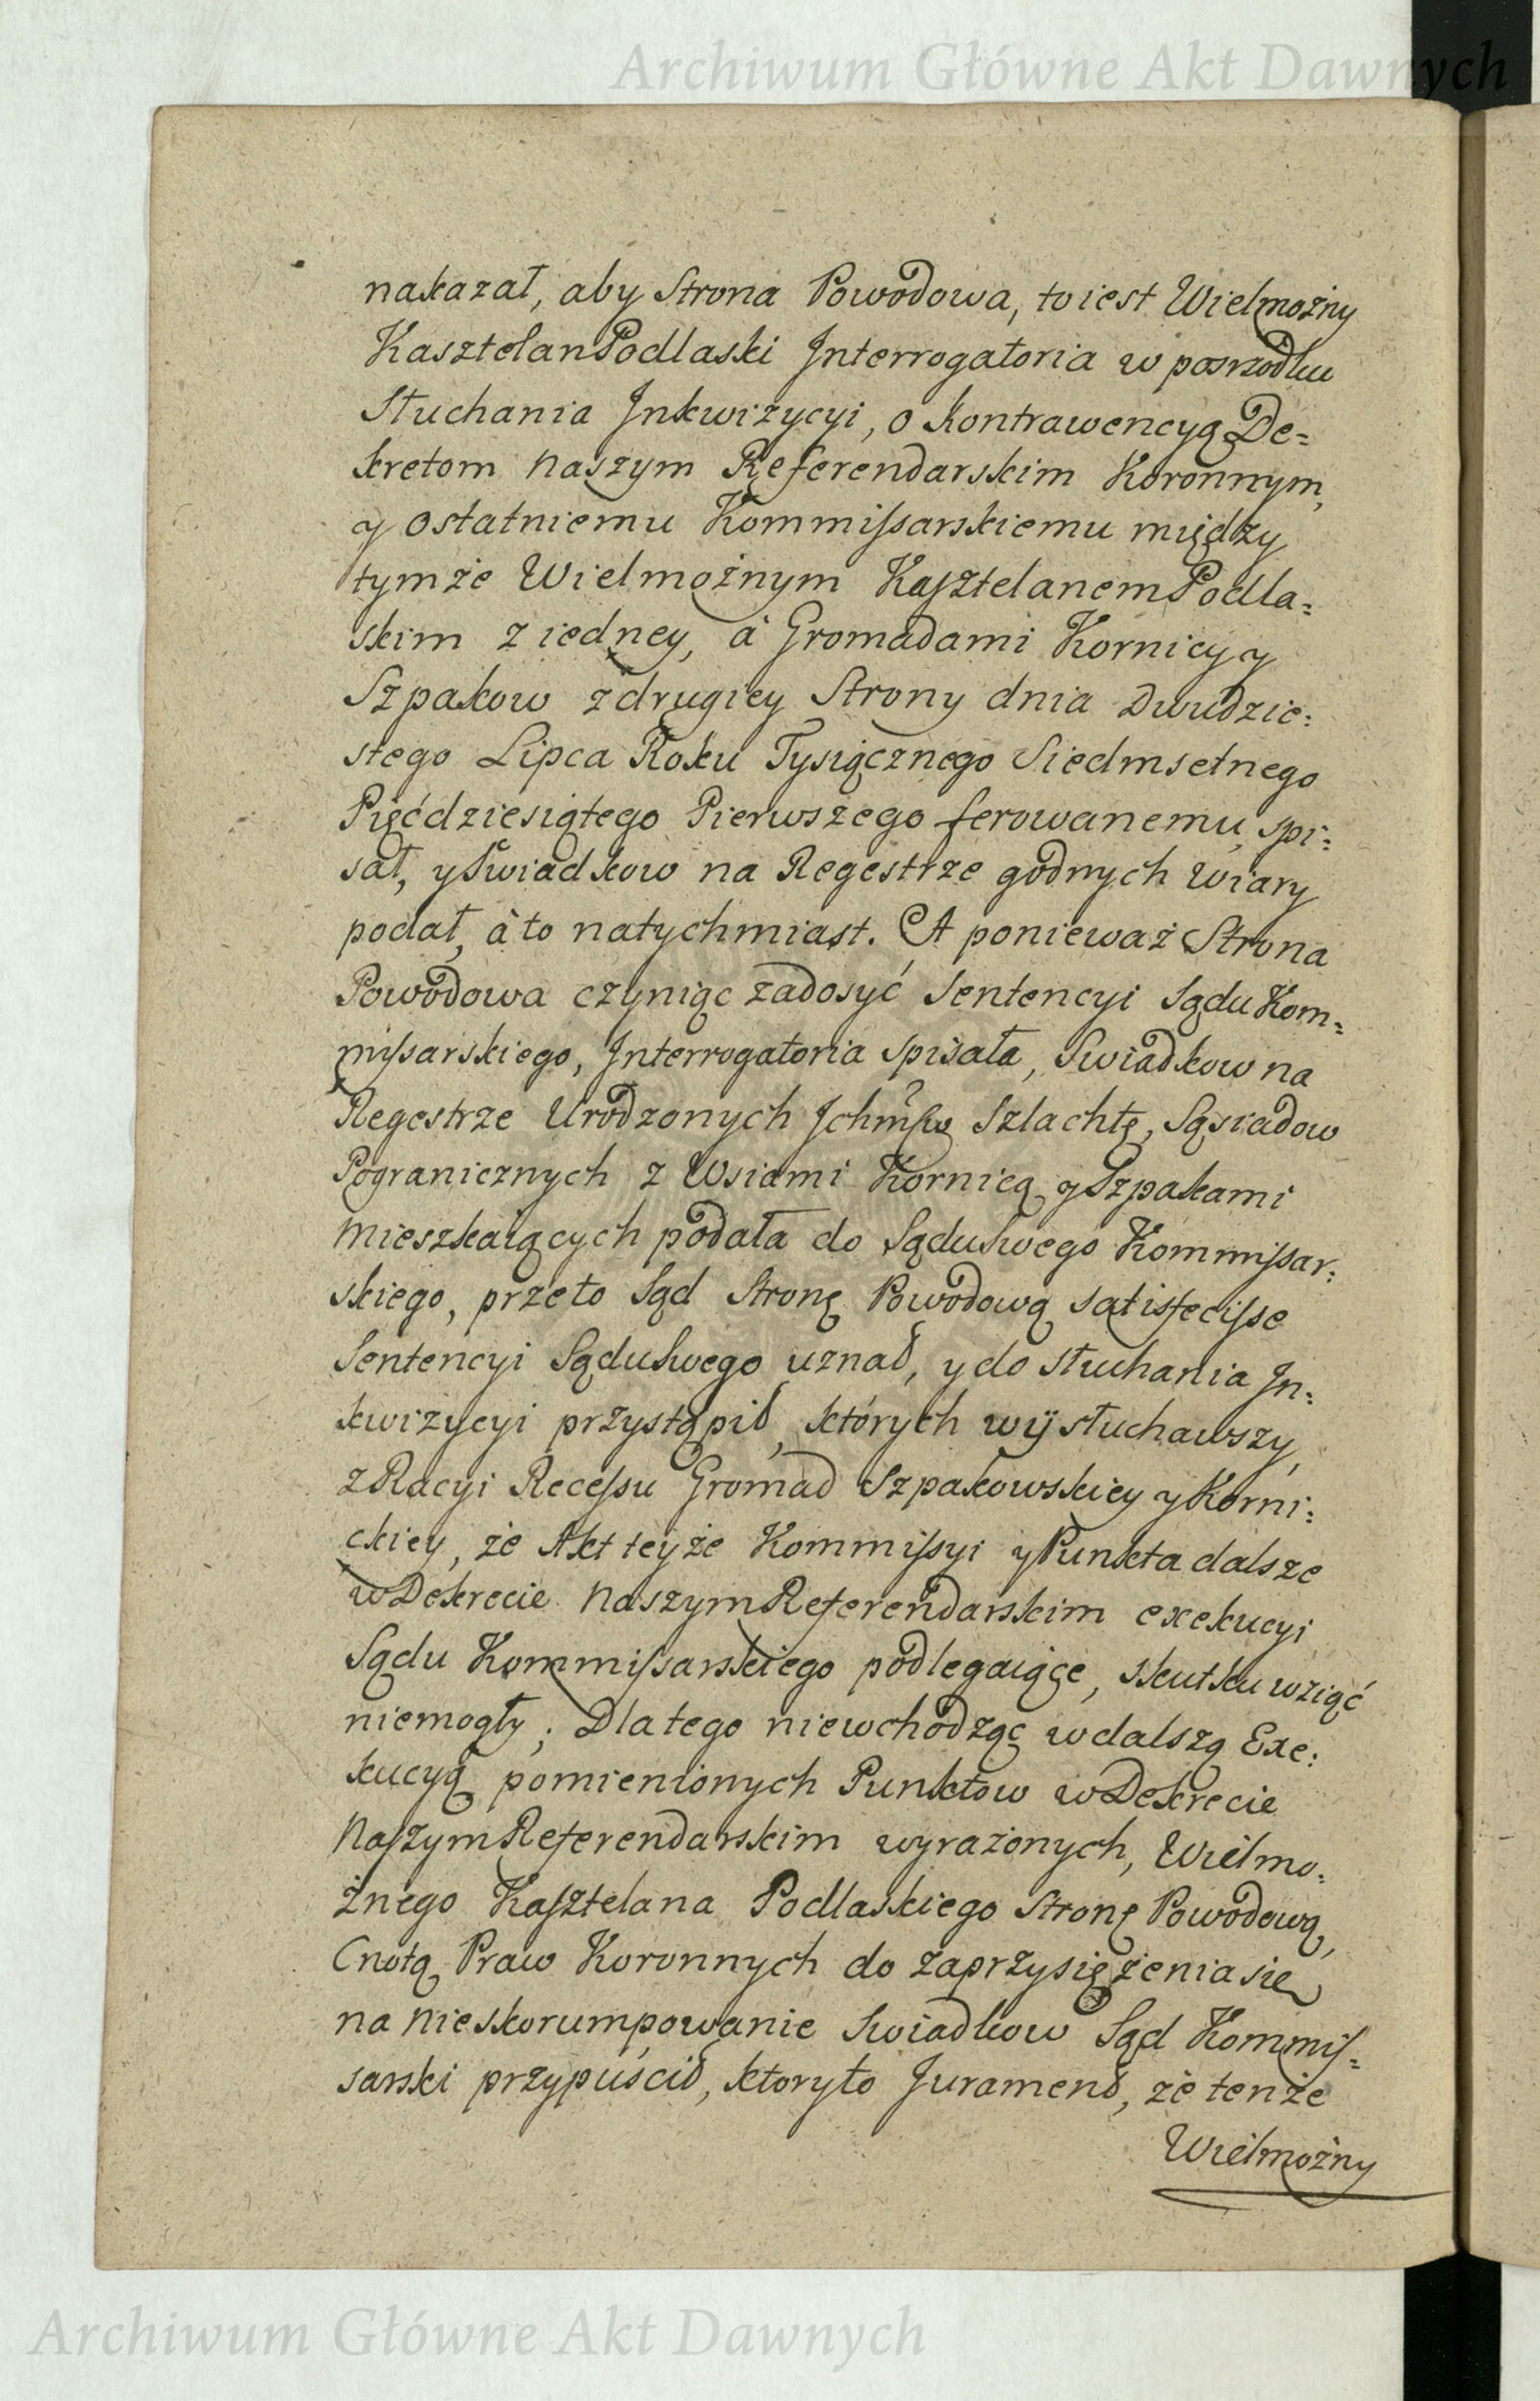 Archiwum Główne Akt Dawnych
nakazał, aby Strona Powodowa, to iest Wielmożny
Kasztelan Podlaski Interrogatoria w posrzodku
Słuchania Inkwizycyi, o kontrawencyą De=
kretom naszym Referendarskim Koronnym,
y ostatniemu Kommissarskiemu między
tymże Wielmożnym Kasztelanem Podla=
skim z iedney, à Gromadami Kornicy y
Szpakow z drugiey Strony dnia Dwudzie=
stego Lipca Roku Tysiącznego Siedmsetnego
Pięćdziesiątego Pierwszego ferowanemu, spi=
sał, y Swiadkow na Regestrze godnych wiary
podał, à to natychmiast. A ponieważ Strona
Powodowa czyniąc zadosyć Sentencyi Sądu Kom=
missarskiego, Interrogatoria spisała, Swiadkow na
Regestrze Urodzonych Szlachtę, Sąsiadow
Pogranicznych z Wsiami Kornicą y Szpakami
mieszkaiących podała do Sądu swego Kommissar=
skiego, przeto Sąd Stronę Powodową satisfecisse
Sentencyi Sądu swego uznał, y do słuchania In=
kwizycyi przystąpił, których wÿsłuchawszy,
z Racyi Recessu Gromad Szpakowskiey y Korni=
ckiey, że Akt teyże Kommissyi y Punkta dalsze
w Dekrecie naszym Referendarskim exekucyi
Sądu Kommissarskiego podlegaiące, skutku wziąć
niemogły; Dla tego niewchodząc w dalszą Exe=
kucyą pomienionych Punktow w Dekrecie
naszym Referendarskim wyrażonych, Wielmo=
żnego Kasztelana Podlaskiego Stronę Powodową,
Cnotą Praw Koronnych do zaprzysiężenia się
na nieskorumpowanie swiadkow Sąd Kommis=
sarski przypuścił, ktoryto Jurament, że tenże
Wielmożny
Archiwum Główne Akt Dawnych